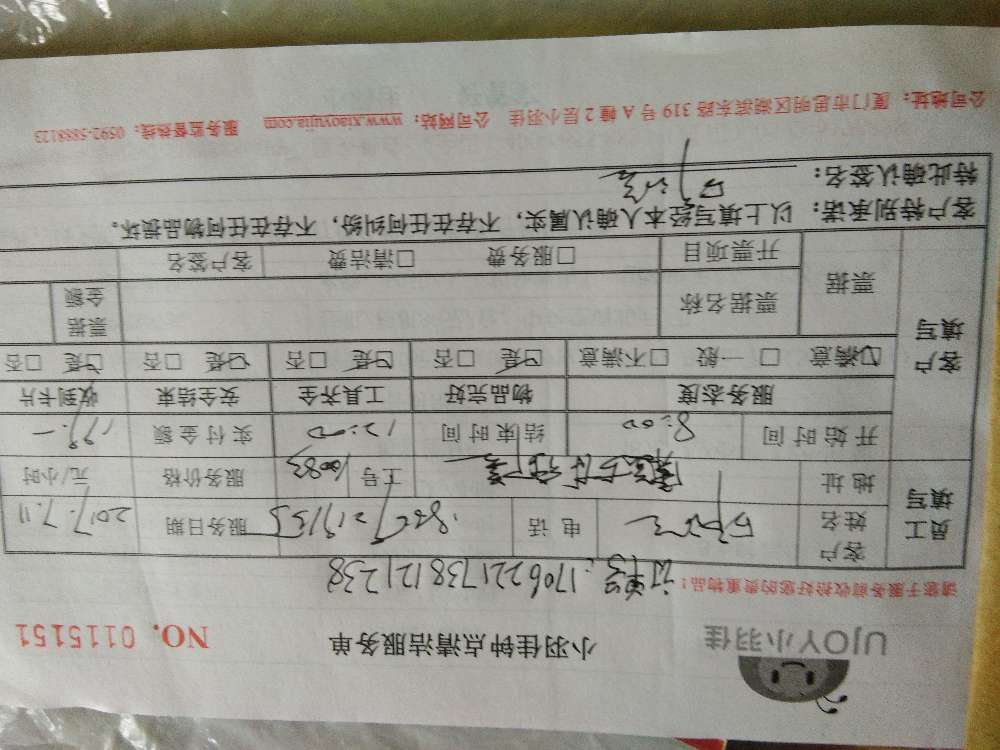 UJOY小羽佳
小羽佳钟点清洁服务单
NO. 0115151
请您于服务前收拾好您的贵重物品!
订单号:1706221738121238
员工填写
客户姓名
电话
服务日期 2017.7.11
地址
工号 16083
服务价格
元/小时
开始时间 8:00
结束时间 12:00
实付金额
客户填写
服务态度 物品完好 工具齐全 安全结束 收到卡片
☑满意 □一般 □不满意 ☑是 □否 ☑是 □否 ☑是 □否 ☑是 □否
票据
票据名称
票据金额
开票项目 □服务费 □清洁费 客户签名
客户特别承诺:以上填写经本人确认属实,不存在任何纠纷,不存在任何物品损坏。
特此确认签名:
公司地址:厦门市思明区湖滨东路 319 号 A 幢 2 层小羽佳 公司网站:www.xiaoyujia.com 服务监督热线:0592-5888123